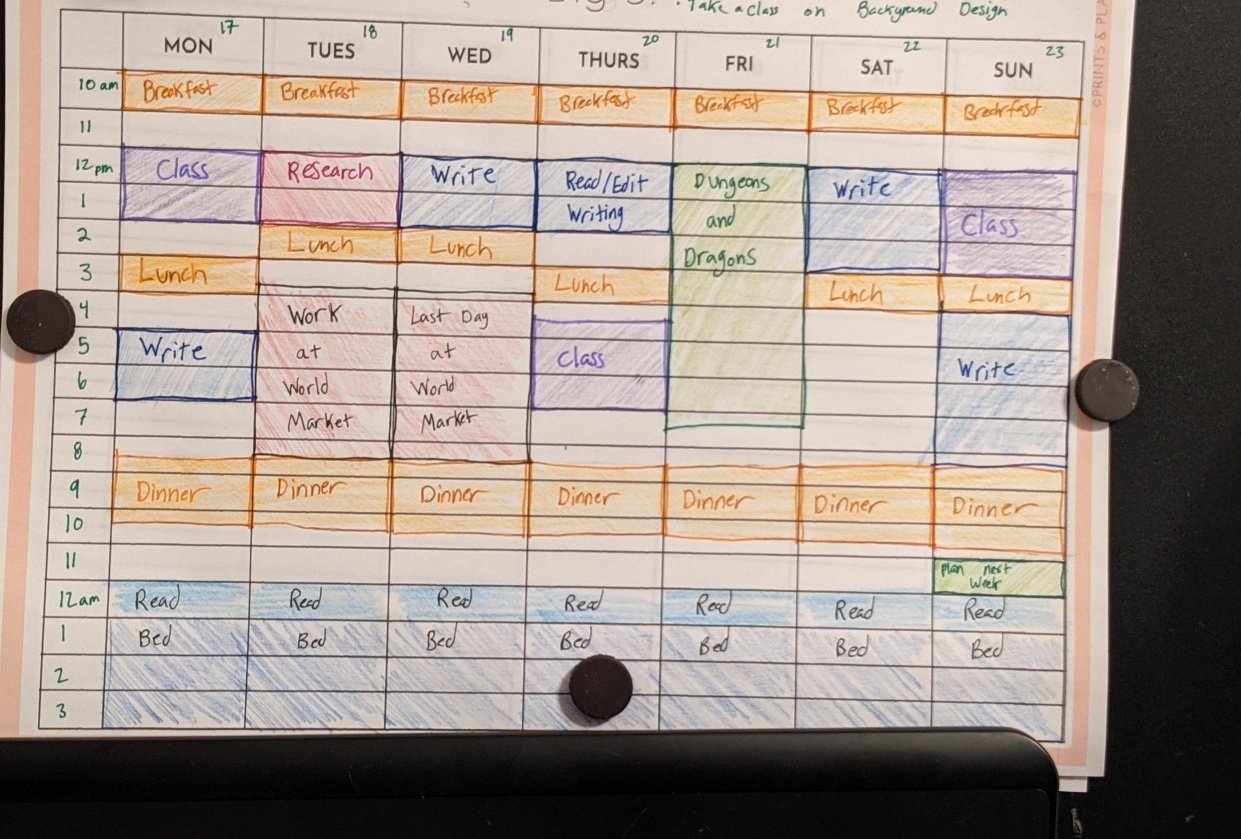 Take a class on Background Design
17 18 19 20 21 22 23
MON TUES WED THURS FRI SAT SUN
10 am Breakfast Breakfast Breakfast Breakfast Breakfast Breakfast Breakfast
11
12 pm Class Research Write Read/Edit Dungeons Write
1 Writing and Class
2 Lunch Lunch Dragons
3 Lunch Lunch Lunch Lunch
4 Work Last Day
5 Write at at Class
6 World World Write
7 Market Market
8
9 Dinner Dinner Dinner Dinner Dinner Dinner Dinner
10
11 Plan next
Week
12am Read Read Read Read Read Read Read
1 Bed Bed Bed Bed Bed Bed Bed
2
3
©PRINTS & PLA